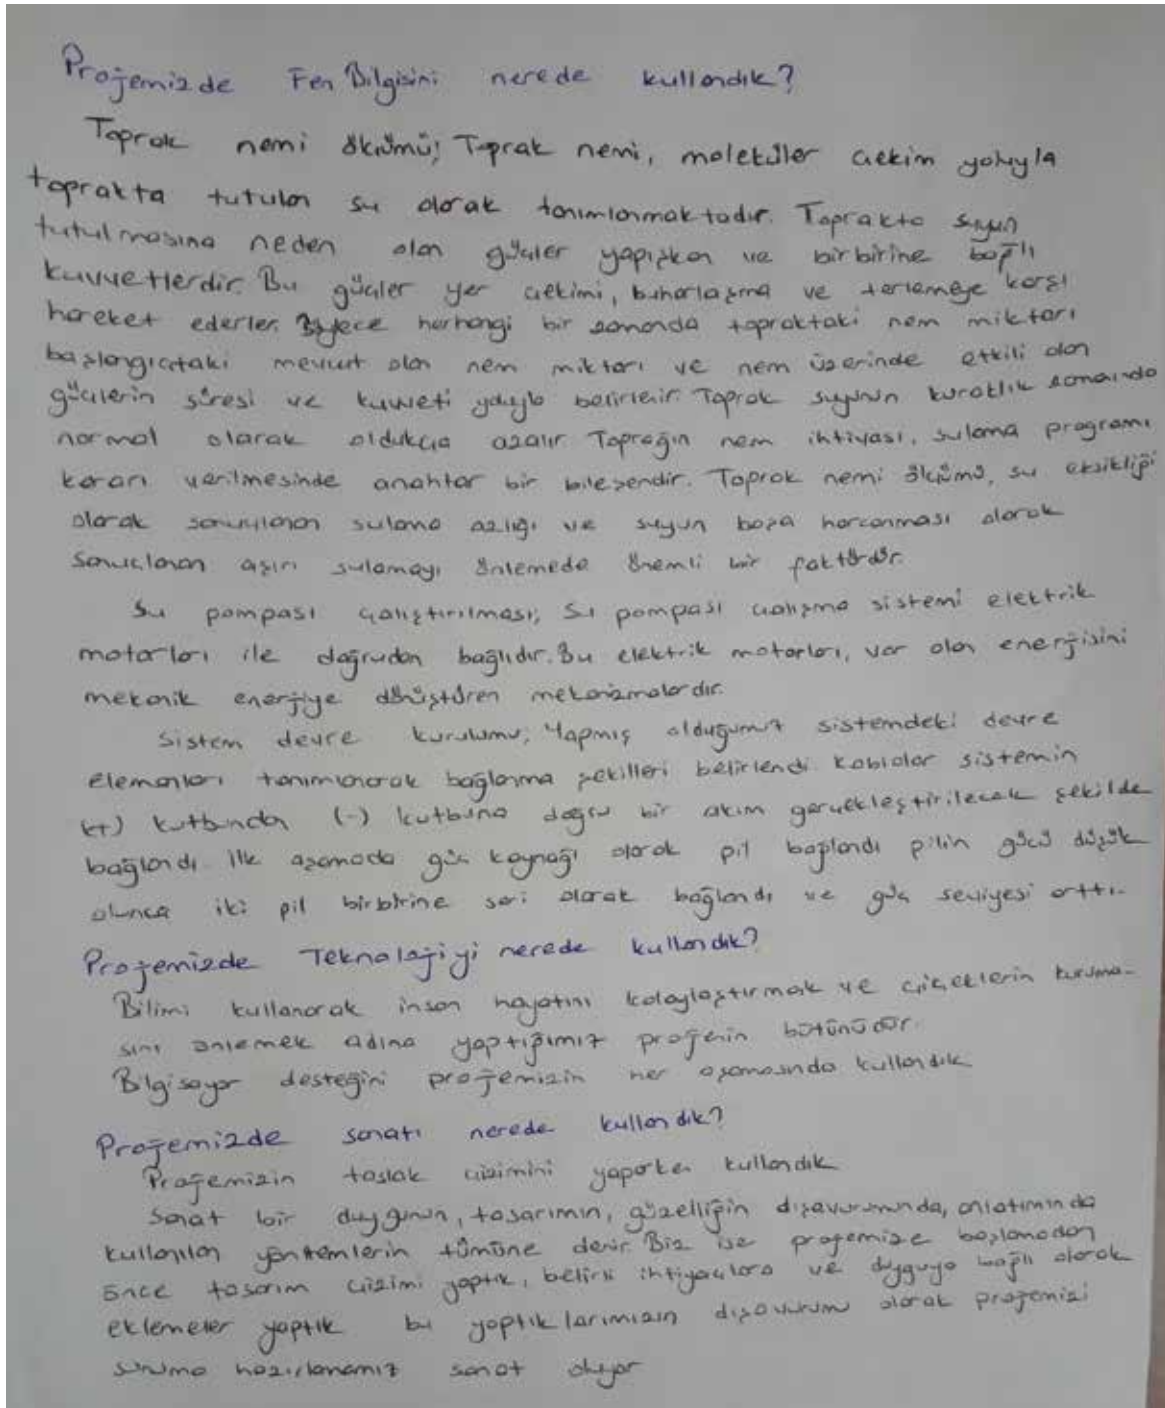 Projemizde Fen Bilgisini nerede kullandık?
Toprak nemi ölçümü; Toprak nemi, moleküler çekim yoluyla
toprakta tutulan su olarak tanımlanmaktadır. Toprakta suyun
tutulmasına neden olan güçler yapışkan ve birbirine bağlı
kuvvetlerdir. Bu güçler yer çekimi, buharlaşma ve terlemeye karşı
hareket ederler. Böylece herhangi bir zamanda topraktaki nem miktarı
başlangıçtaki mevcut olan nem miktarı ve nem üzerinde etkili olan
güçlerin süresi ve kuvveti yoluyla belirlenir. Toprak suyunun kuraklık zamanında
normal olarak oldukça azalır. Toprağın nem ihtiyası, sulama programı
kararı verilmesinde anahtar bir bileşendir. Toprak nemi ölçümü, su eksikliği
olarak sonuçlanan sulama azlığı ve suyun boşa harcanması olarak
sonuçlanan aşırı sulamayı önlemede önemli bir faktördür.
Su pompası çalıştırılması; Su pompası çalışma sistemi elektrik
motorları ile doğrudan bağlıdır. Bu elektrik motorları, var olan enerjisini
mekanik enerjiye dönüştüren mekanizmalardır.
Sistem devre kurulumu; Yapmış olduğumuz sistemdeki devre
elemanları tanımlanarak bağlanma şekilleri belirlendi. Kablolar sistemin
(+) kutbundan (-) kutbuna doğru bir akım gerçekleştirilecek şekilde
bağlandı. İlk aşamada güç kaynağı olarak pil bağlandı pilin gücü düşük
olunca iki pil birbirine seri olarak bağlandı ve güç seviyesi arttı.
Projemizde Teknolojiyi nerede kullandık?
Bilimi kullanarak insan hayatını kolaylaştırmak ve çiçeklerin kuruma-
sını önlemek adına yaptığımız projenin bütünüdür.
Bilgisayar desteğini projemizin her aşamasında kullandık
Projemizde sanatı nerede kullandık?
Projemizin taslak çizimini yaparken kullandık
Sanat bir duygunun, tasarımın, güzelliğin dışavurumunda, anlatımında
kullanılan yöntemlerin tümüne denir. Biz ise projemize başlamadan
önce tasarım çizimi yaptık, belirli ihtiyaçlara ve duyguya bağlı olarak
eklemeler yaptık bu yaptıklarımızın dışavurumu olarak projemizi
sunuma hazırlanamız sanat oluyor